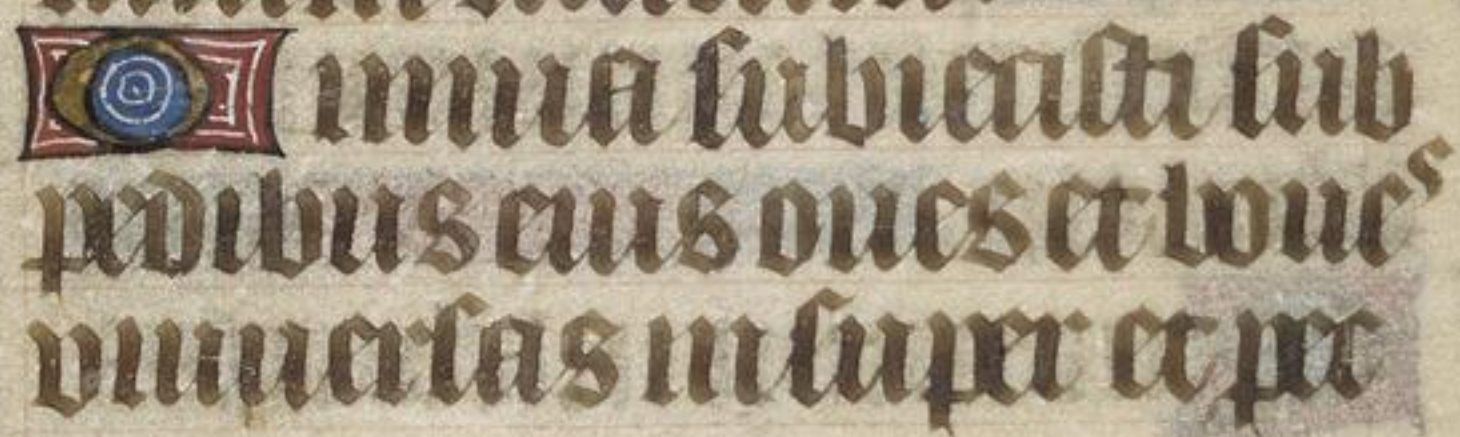 Omnia subiecisti sub
pedibus eius oues et boues
uniuersas insuper et pec